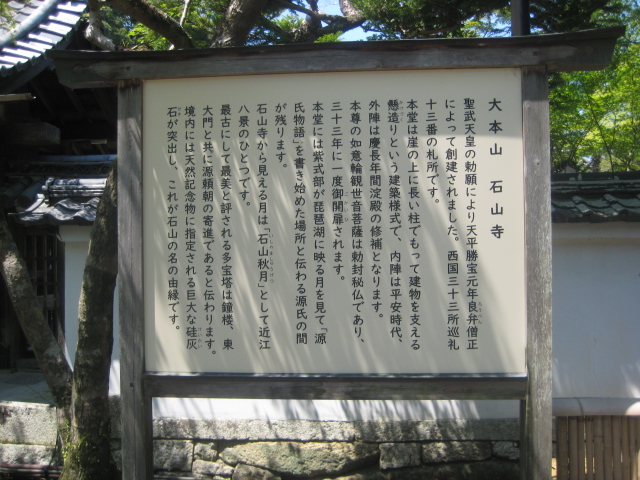 大本山　石山寺
聖武天皇の勅願により天平勝宝元年良弁僧正
によって創建されました。西国三十三所巡礼
十三番の札所です。
本堂は崖の上に長い柱でもって建物を支える
懸造りという建築様式で、内陣は平安時代、
外陣は慶長年間淀殿の修補となります。
本尊の如意輪観世音菩薩は勅封秘仏であり、
三十三年に一度御開扉されます。
本堂には紫式部が琵琶湖に映る月を見て「源
氏物語」を書き始めた場所と伝わる源氏の間
が残ります。
石山寺から見える月は「石山秋月」として近江
八景のひとつです。
最古にして最美と評される多宝塔は鐘楼、東
大門と共に源頼朝の寄進であると伝わります。
境内には天然記念物に指定される巨大な硅灰
石が突出し、これが石山の名の由縁です。